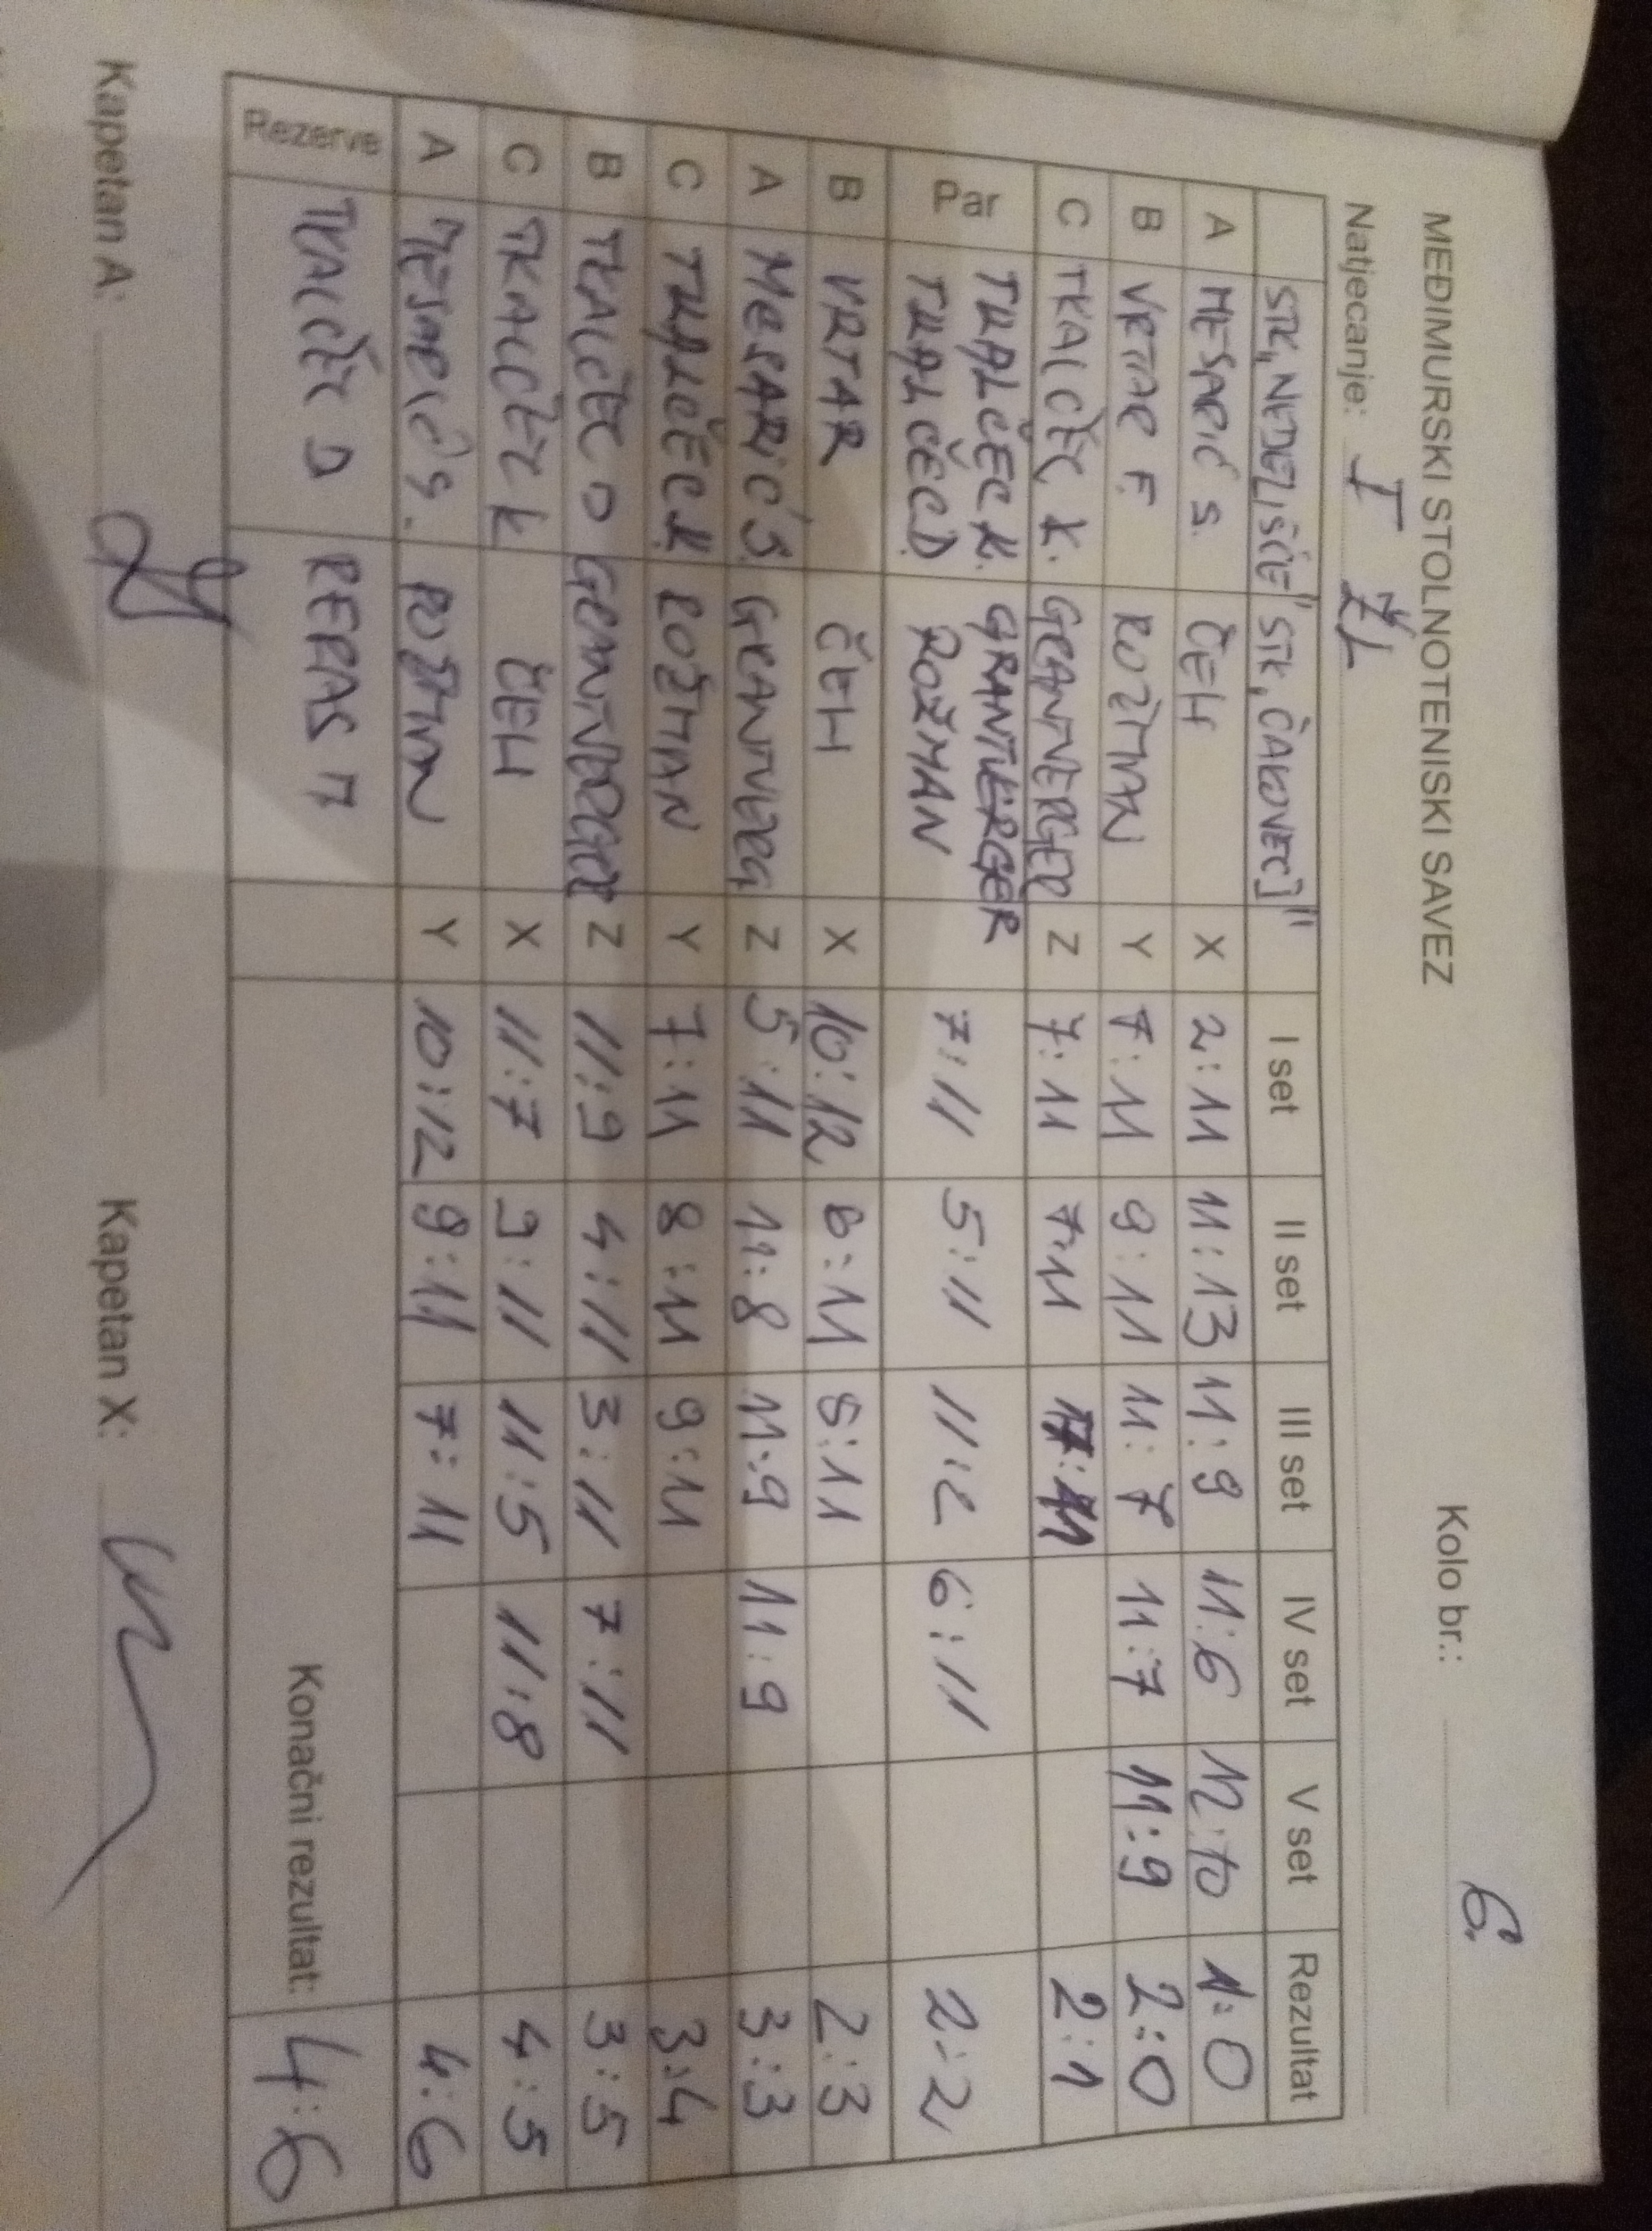 MEĐIMURSKI STOLNOTENISKI SAVEZ Kolo br.: 6.
Natjecanje: I ŽL
STK "NEDELIŠĆE" STK "ČAKOVEC I" I set II set III set IV set V set Rezultat
A MESARIĆ S. ČEH X 2:11 11:13 11:9 11:6 12:10 1:0
B VRTAR F. ROŽMAN Y 7:11 9:11 11:7 11:7 11:9 2:0
C TKALČEC K. GRANTVERGER Z 7:11 7:11 2:1
Par TKALČEC K. GRANTVERGER 7:11 5:11 11:2 6:11 2:2
TKALČEC D. ROŽMAN
B VRTAR ČEH X 10:12 6:11 8:11 2:3
A MESARIĆ S. GRANTVERG Z 5:11 11:8 11:9 11:9 3:3
C TKALČEC K. ROŽMAN Y 7:11 8:11 9:11 3:4
B TKALČEC D GRANTVERGER Z 11:9 4:11 3:11 7:11 3:5
C TKALČEC K ČEH X 11:7 9:11 11:5 11:8 4:5
A MESARIĆ S. Y 10:12 9:11 7:11 4:6
Rezerve TKALČEC D REPAS M Konačni rezultat: 4:6
Kapetan A: Kapetan X: